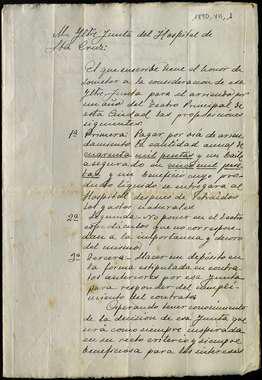 1890, VII, 1
M. Iltre. Junta del Hospital de
Sta Cruz.
El que suscribe tiene el honor de
someter a la consideracion de esa
Iltre. Junta para el arriendo por
un año del Teatro Principal de
esta Ciudad las proposiciones
siguientes:
1ª Primera: Pagar por via de arren-
damiento la cantidad anual de
cuarenta mil pesetas y un baile
asegurado en cinco mil pese-
tas y un beneficio cuyo pro-
ducto líquido se entregará al
Hospital despues de estraidos
los gastos naturales
2ª Segunda. No poner en el Teatro
espectáculos que no correspon-
dan a la importancia y decoro
del mismo.
3ª Tercera. Hacer un depósito en
la forma estipulada en contra-
tos anteriores por esa Junta
para responder del cumpli-
miento del contrato.
Esperando tener conocimiento
de la decision de esa Junta que
será como siempre inspirada
en su recto criterio y siempre
beneficiosa para los intereses